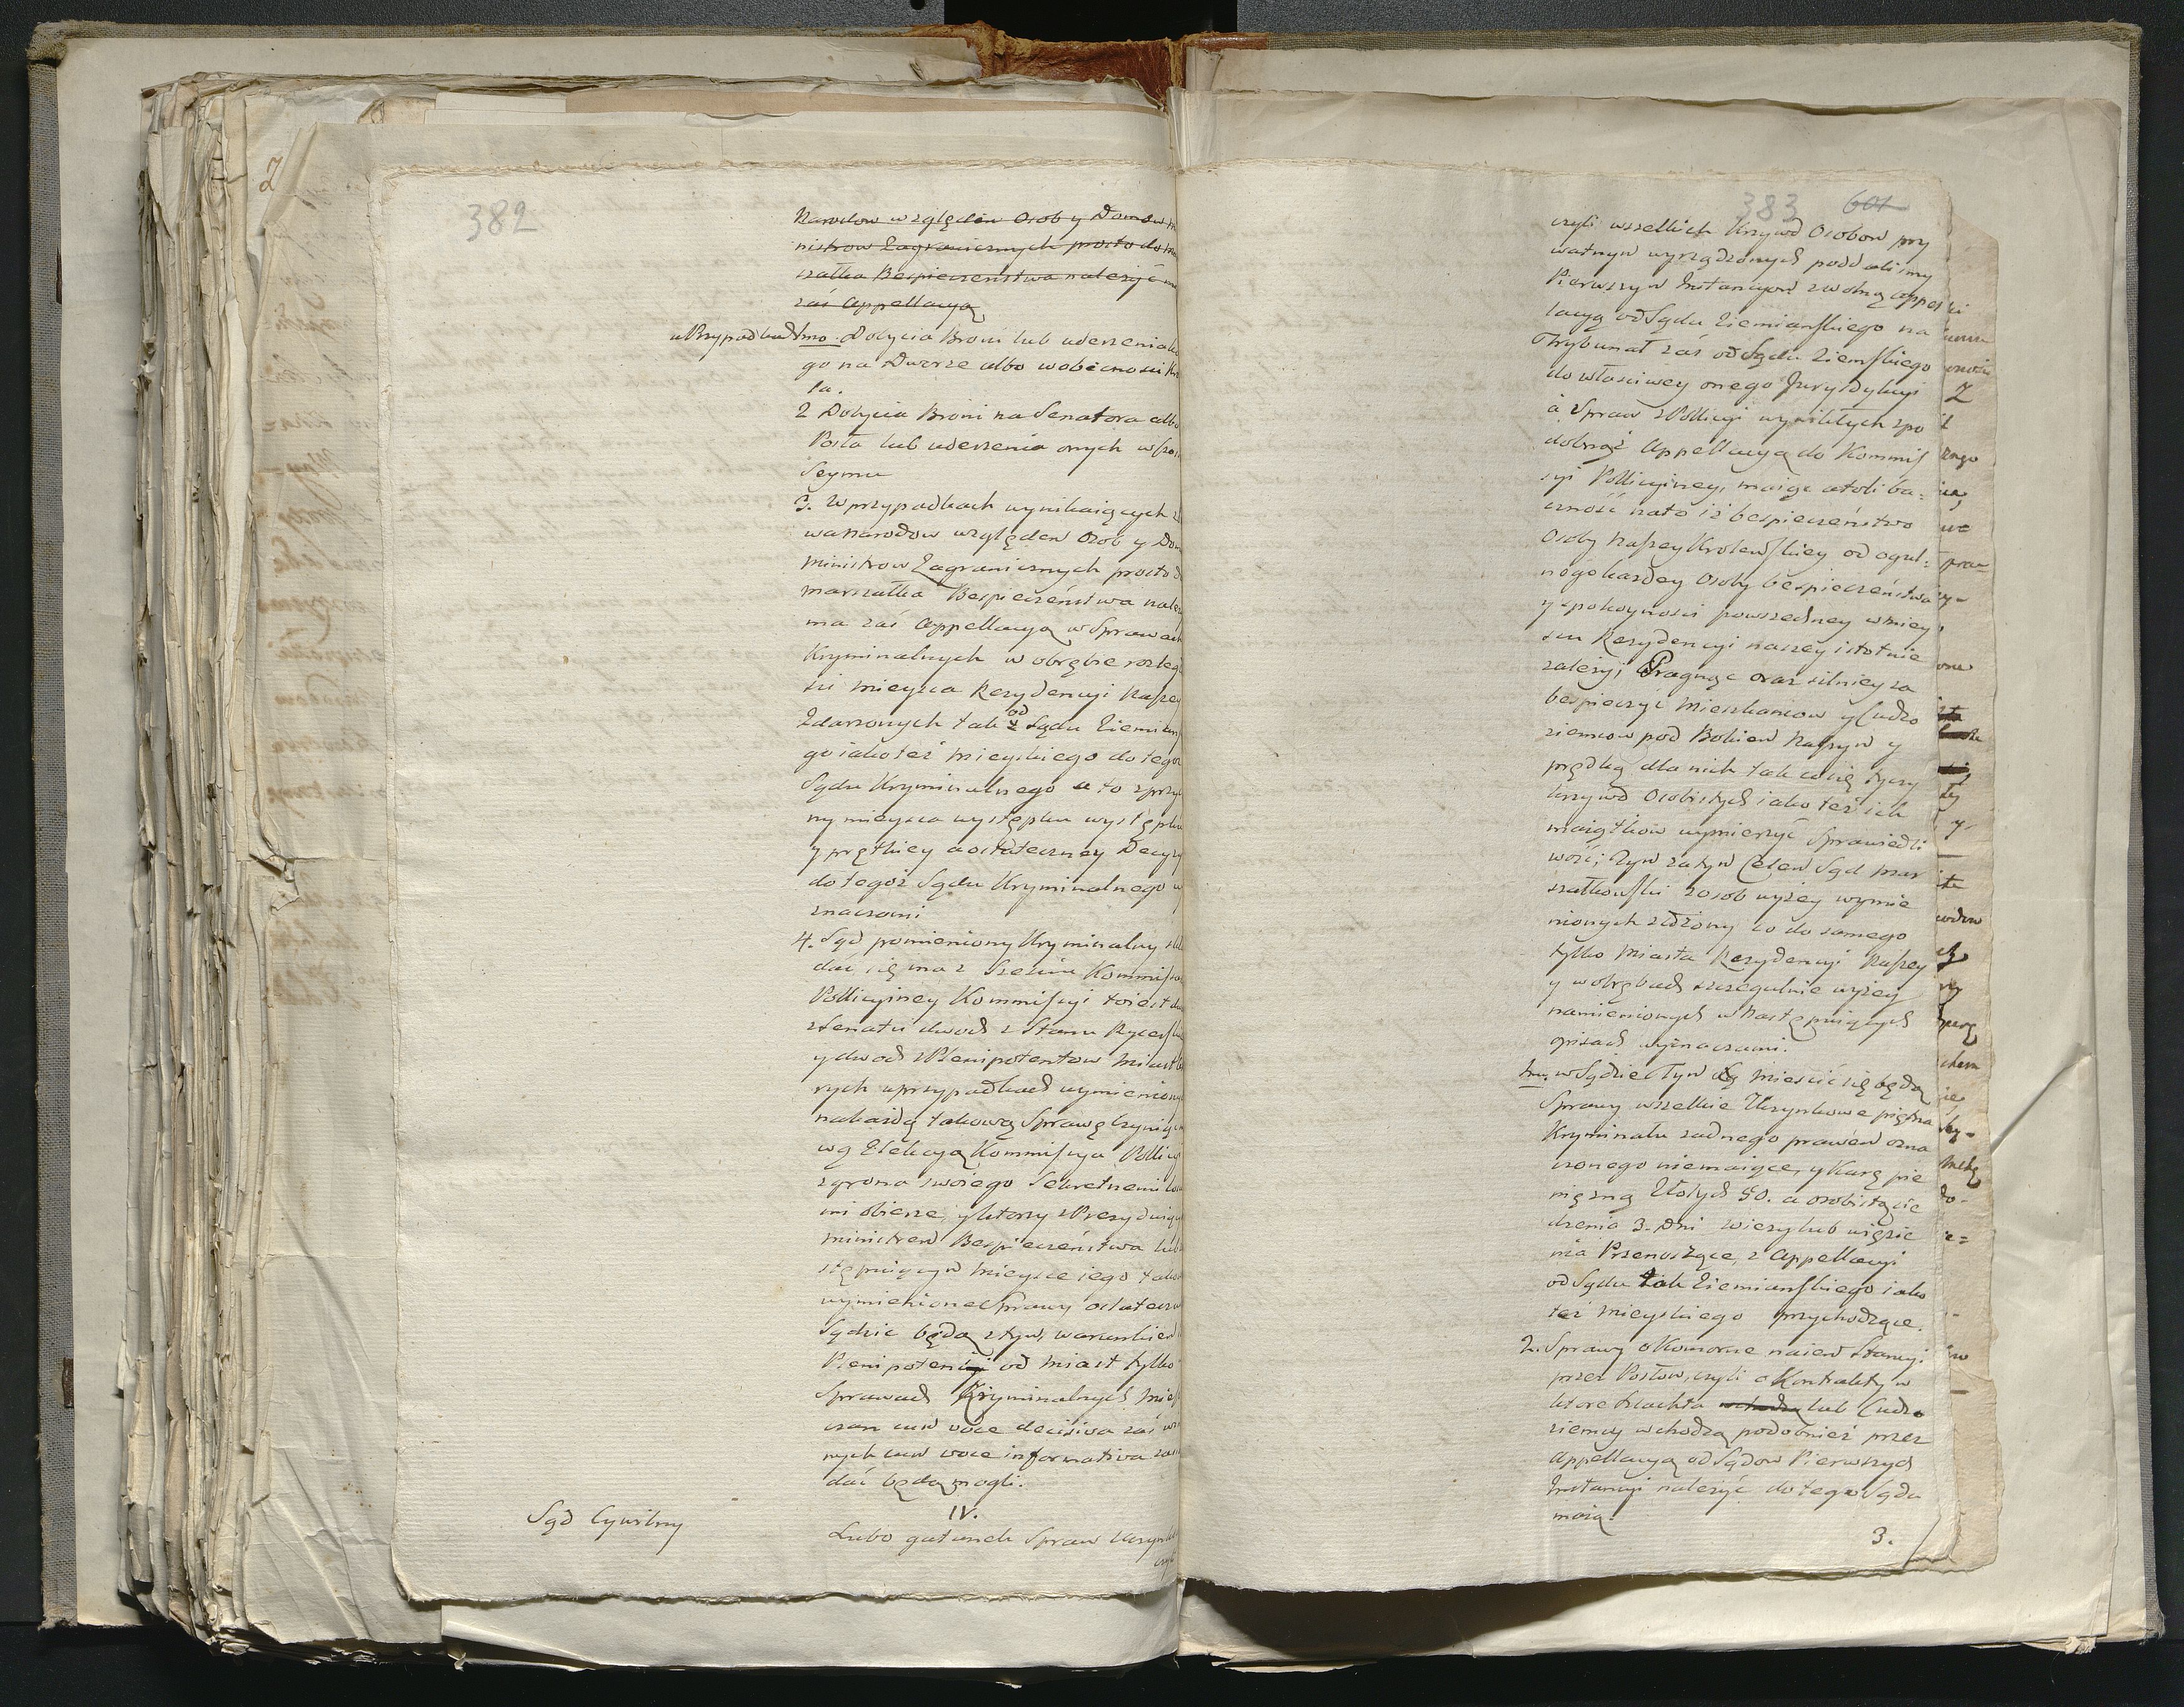 382
Narodow względem Osob y Domow
nistrow Zagranicznych prosto do
szałka Bespieczeństwa należyć
zaś Appellacyą
w Przypadkach 1mo. Dobycia Broni lub uderzenia
go na Dworze albo w obecnosci
la.
2 Dobycia Broni na Senatora albo
Posła lub uderzenia onych w
Seymu
3. W przypadkach wynikaiących
wa Narodow względem Osob y
Ministrow Zagranicznych prosto
Marszałka Bespieczeństwa
ma zaś Appellacyą w Sprawach
Kryminalnych w obrębie
ści Mieysca Rezydencyi Naszey
Zdarzonych tak od Sądu
go iako też Mieyskiego do tegoż
Sądu Kryminalnego a to z
ny mieysca występku
y prętkiey a ostateczney
do tegoż Sądu Kryminalnego
znaczami
4. Sąd pomieniony Kryminalny
dać się ma z Sześciu
Pollicyiney Kommissyi to iest
z Senatu dwoch z Stanu
y dwoch z Plenipotentow Miast
rych w przypadkach
na każdą takową Sprawę
wą Elekcyą Kommissya
z grona swoiego Sekretnemi
mi obierze, y ktorzy z
Ministrem Bespieczeństwa lub
stępuiącym Mieysce iego
wymienione Sprawy
Sądzić będą z tym warunkiem
Plenipotenci od Miast tylko
Sprawach Kryminalnych
czan cum voce decisiva zaś
nych cum voce informativa
dać będą mogli.
IV.
Sąd Cywilny
Lubo gatunek Spraw
czyli
383 601
czyli wszelkich Krzywd Osobom pry
watnym wyrządzonych poddalismy
Pierwszym Instancyom z wolną Appel
lacyą od Sądu Ziemiańskiego na
Trybunał zaś od Sądu Ziemskiego
do własciwey onego Jurysdykcyi
a Spraw z Pollicyi wynikłych spo
dobnąż Appellacyą do Kommis
syi Pollicyiney, maiąc atoli ba=
czność na to iż bespieczeństwo
Osoby Naszey Krolewskiey od ogul=
nego każdey Osoby bespieczeństwa
y spokoyności powszedney w miey
scu Rezydencyi naszey istotnie
zależy; Pragnąc oraz silniey za
bespieczyć Mieszkancow y Cudzo
ziemcow pod Bokiem Naszym y
prędką dla nich tak co się tyczy
krzywd Osobistych iako też ich
maiątkow wymierzyć Sprawiedli
wość; Tym zatym Celem Sąd Mar
szałkowski z osob wyżey wymie
nionych złożony co do samego
tylko Miasta Rezydencyi Naszey
y w obrębach szczegulnie wyżey
namienionych w Następuiących
opisach wyznaczami.
1mo. w Sądzie Tym Mieścić się będą
Sprawy wszelkie Uczynkowe piętna
Kryminału żadnego prawem ozna
czonego niemaiące, y Karę pie
nięzną Złotych 50. a osobistą sie
dzenia 3. Dni wieży lub więzie
nia Przenoszące, z Appellacyi
od Sądu tak Ziemiańskiego iako
też Mieyskiego przychodzące.
2. Sprawy o Komorne naiem Stancyi
przez Posłow, czyli o Kontrakty w
ktore Szlachta wchodzą lub Cudzo
ziemcy wchodzą podobnież przez
Appellacyą od Sądow Pierwszych
Instancyi należyć do tego Sądu
maią.
3.